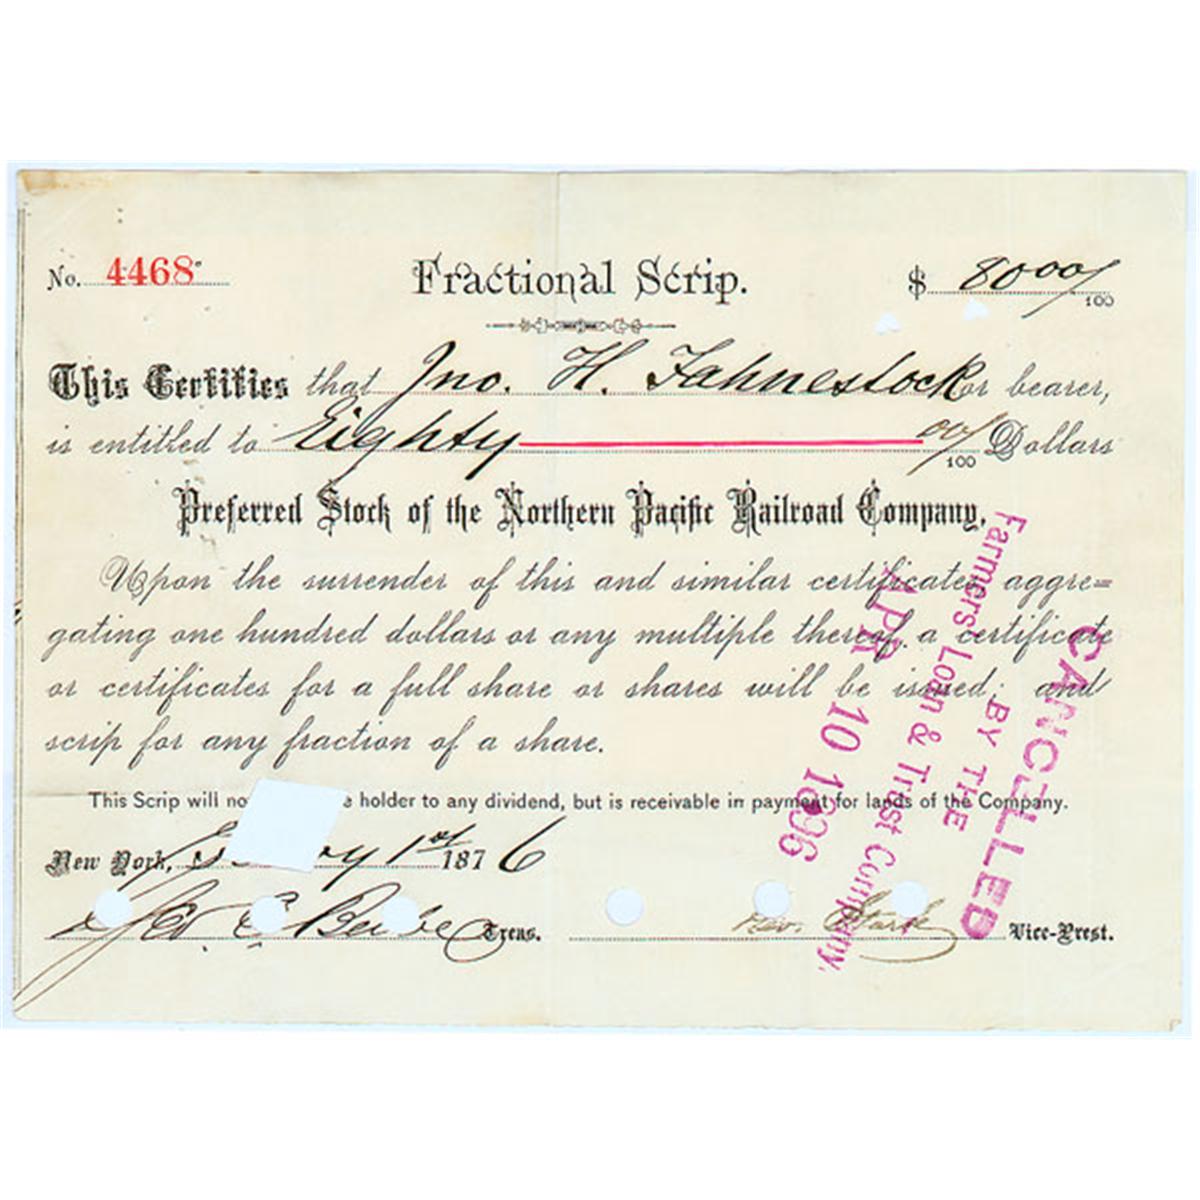 No. 4468 Fractional Scrip. $ 80 00/100
This Certifies that Jno. H. Fahnestock or bearer,
is entitled to Eighty 00/100 Dollars
Preferred Stock of the Northern Pacific Railroad Company.
Upon the surrender of this and similar certificates aggre=
gating one hundred dollars or any multiple thereof, a certificate
or certificates for a full share or shares will be issued; and
scrip for any fraction of a share.
This Scrip will no e holder to any dividend, but is receivable in payment for lands of the Company.
New York, 1st 1876
Geo. E. Beebe Treas. Stark Vice-Prest.
CANCELLED
BY THE
Farmers' Loan & Trust Company.
APR 10 1896